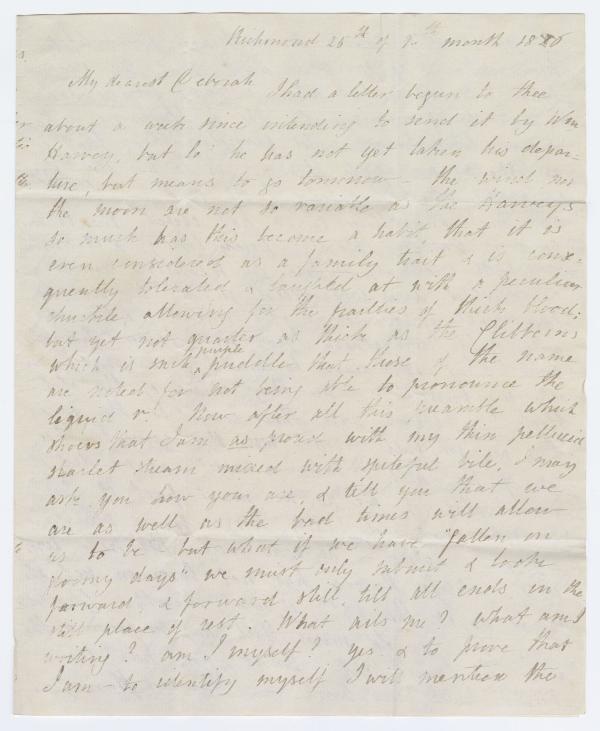 Richmond 25th of th month 1826
My dearest Deborah I had a letter begun to thee
about a week since intending to send it by Wm
Harvey, but lo he has not yet taken his depar-
ture, but means to go tomorrow – the wind nor
the moon are not so variable as the Harveys
so much has this become a habit, that it is
even considered as a family trait & is conse-
quently tolerated & laughed at with a peculiar
chuckle allowing for the frailties of thick blood;
but yet not quarter as thick as the Clibborns
which is such purple puddle that those of the name
are noted for not being able to pronounce the
liquid r. Now after all this preamble which
shews that I am as proud with my thin pellucid
scarlet stream mixed with spiteful bile, I may
ask you how you are, & tell you that we
are as well as the bad times will allow
us to be – but what if we have "fallen on
gloomy days" we must only submit & look
forward, & forward still, till all ends in the
still place of rest. What ails me? what am I
writing? am I myself? yes & to prove that
I am – to identify myself I will mention the